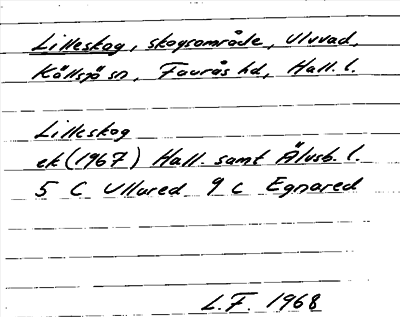 Lilleskog, skogsområde, Uluvad,
Källsjö sn, Faurås hd, Hall. l.
Lilleskog
ek (1967) Hall. samt Älvsb. l.
5 C Ullared 9 C Egnared
L.F. 1968